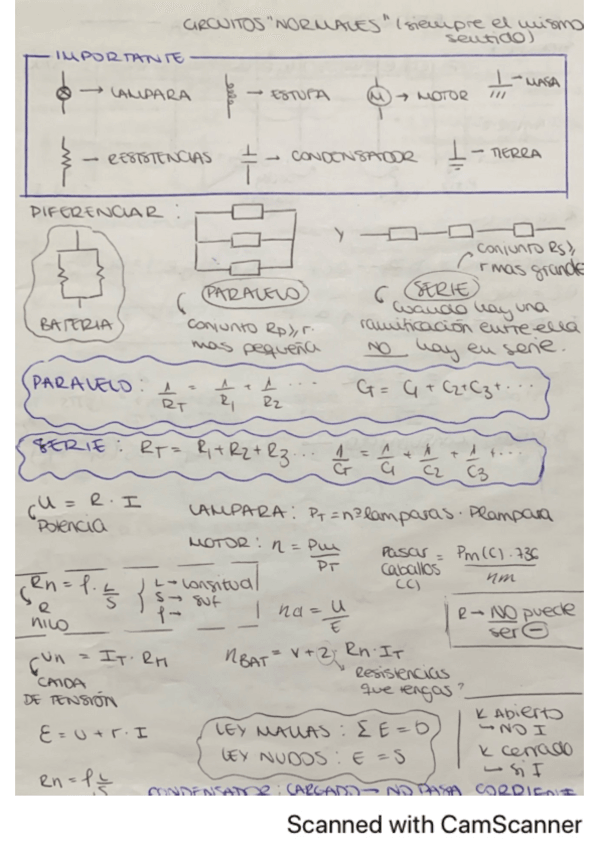 CIRCUITOS "NORMALES" (siempre el mismo
sentido)
IMPORTANTE
→ LAMPARA
→ ESTUFA
M → MOTOR
→ MASA
→ RESISTENCIAS
→ CONDENSADOR
→ TIERRA
DIFERENCIAR:
y
BATERIA
PARALELO
conjunto Rp), r.
mas pequeña
conjunto Rs),
r mas grande
SERIE
cuando hay una
ramificación entre ella
NO hay en serie.
PARALELO: 1/RT = 1/R1 + 1/R2 ... CT = C1 + C2 + C3 + ...
SERIE: RT = R1 + R2 + R3 ... 1/CT = 1/C1 + 1/C2 + 1/C3 + ...
U = R · I
Potencia
LAMPARA: PT = nº lamparas · Plampara
MOTOR: n = Pm/PT
Pasar caballos (C) = Pm(C) · 736 / nm
Rn = f · L/S
R
HILO
L → longitud
S → sup
f →
na = U/E
R → NO puede
ser ⊖
Un = IT · RH
CAIDA
DE TENSIÓN
nBAT = V + 2 Rn · IT
Resistencias
que tengas?
E = U + r · I
LEY MALLAS: Σ E = 0
LEY NUDOS: E = S
K Abierto
→ NO I
K cerrado
→ SI I
Rn = f L/S
CONDENSADOR: CARGADO → NO PASA CORRIENTE
Scanned with CamScanner